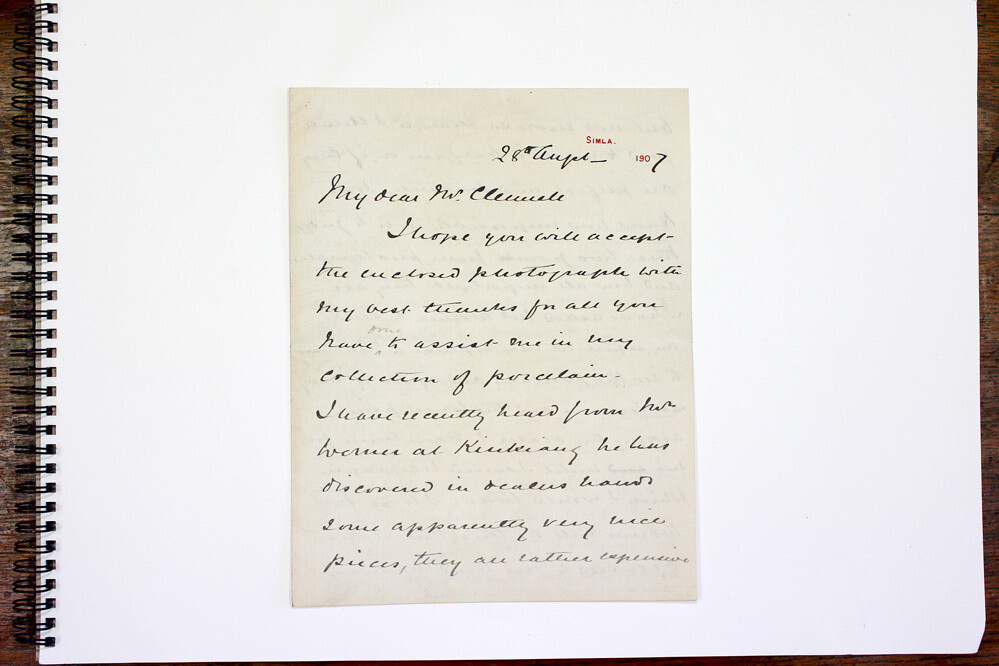 SIMLA.
28th Augt— 1907
My dear Mr. Clennell
I hope you will accept
the enclosed photograph with
my best thanks for all you
have done to assist me in my
collection of porcelain—
I have recently heard from Mr
Werner at Kiukiang he has
discovered in dealers hands
some apparently very nice
pieces, they are rather expensive